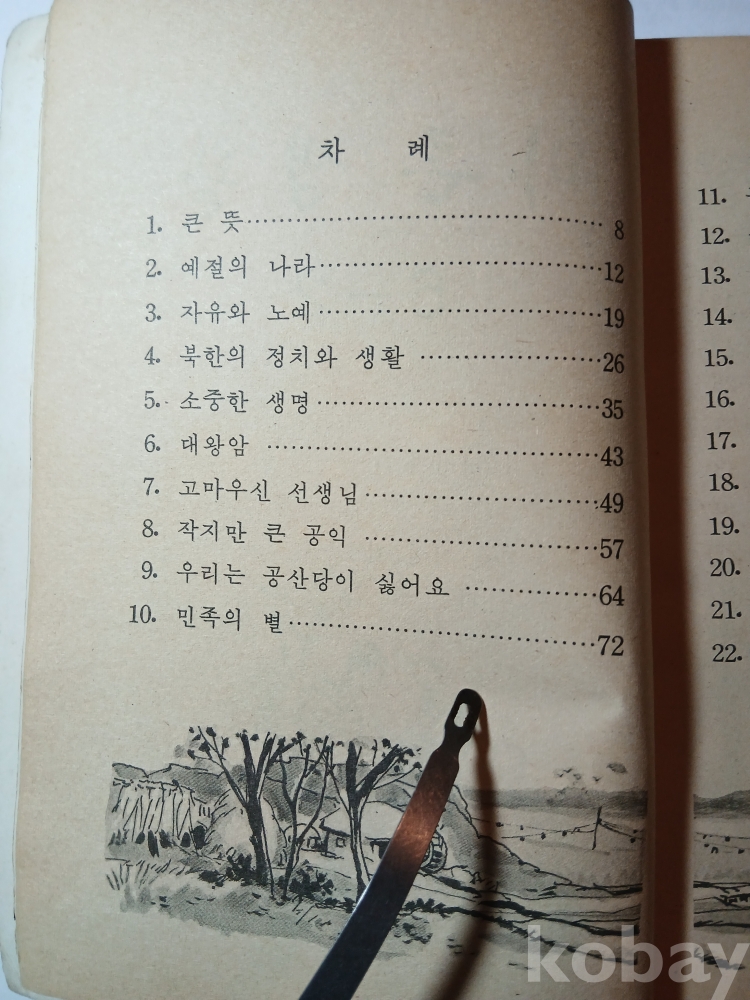 차 례
1. 큰 뜻 8
2. 예절의 나라 12
3. 자유와 노예 19
4. 북한의 정치와 생활 26
5. 소중한 생명 35
6. 대왕암 43
7. 고마우신 선생님 49
8. 작지만 큰 공익 57
9. 우리는 공산당이 싫어요 64
10. 민족의 별 72
11.
12.
13.
14.
15.
16.
17.
18.
19.
20.
21.
22.
kobay